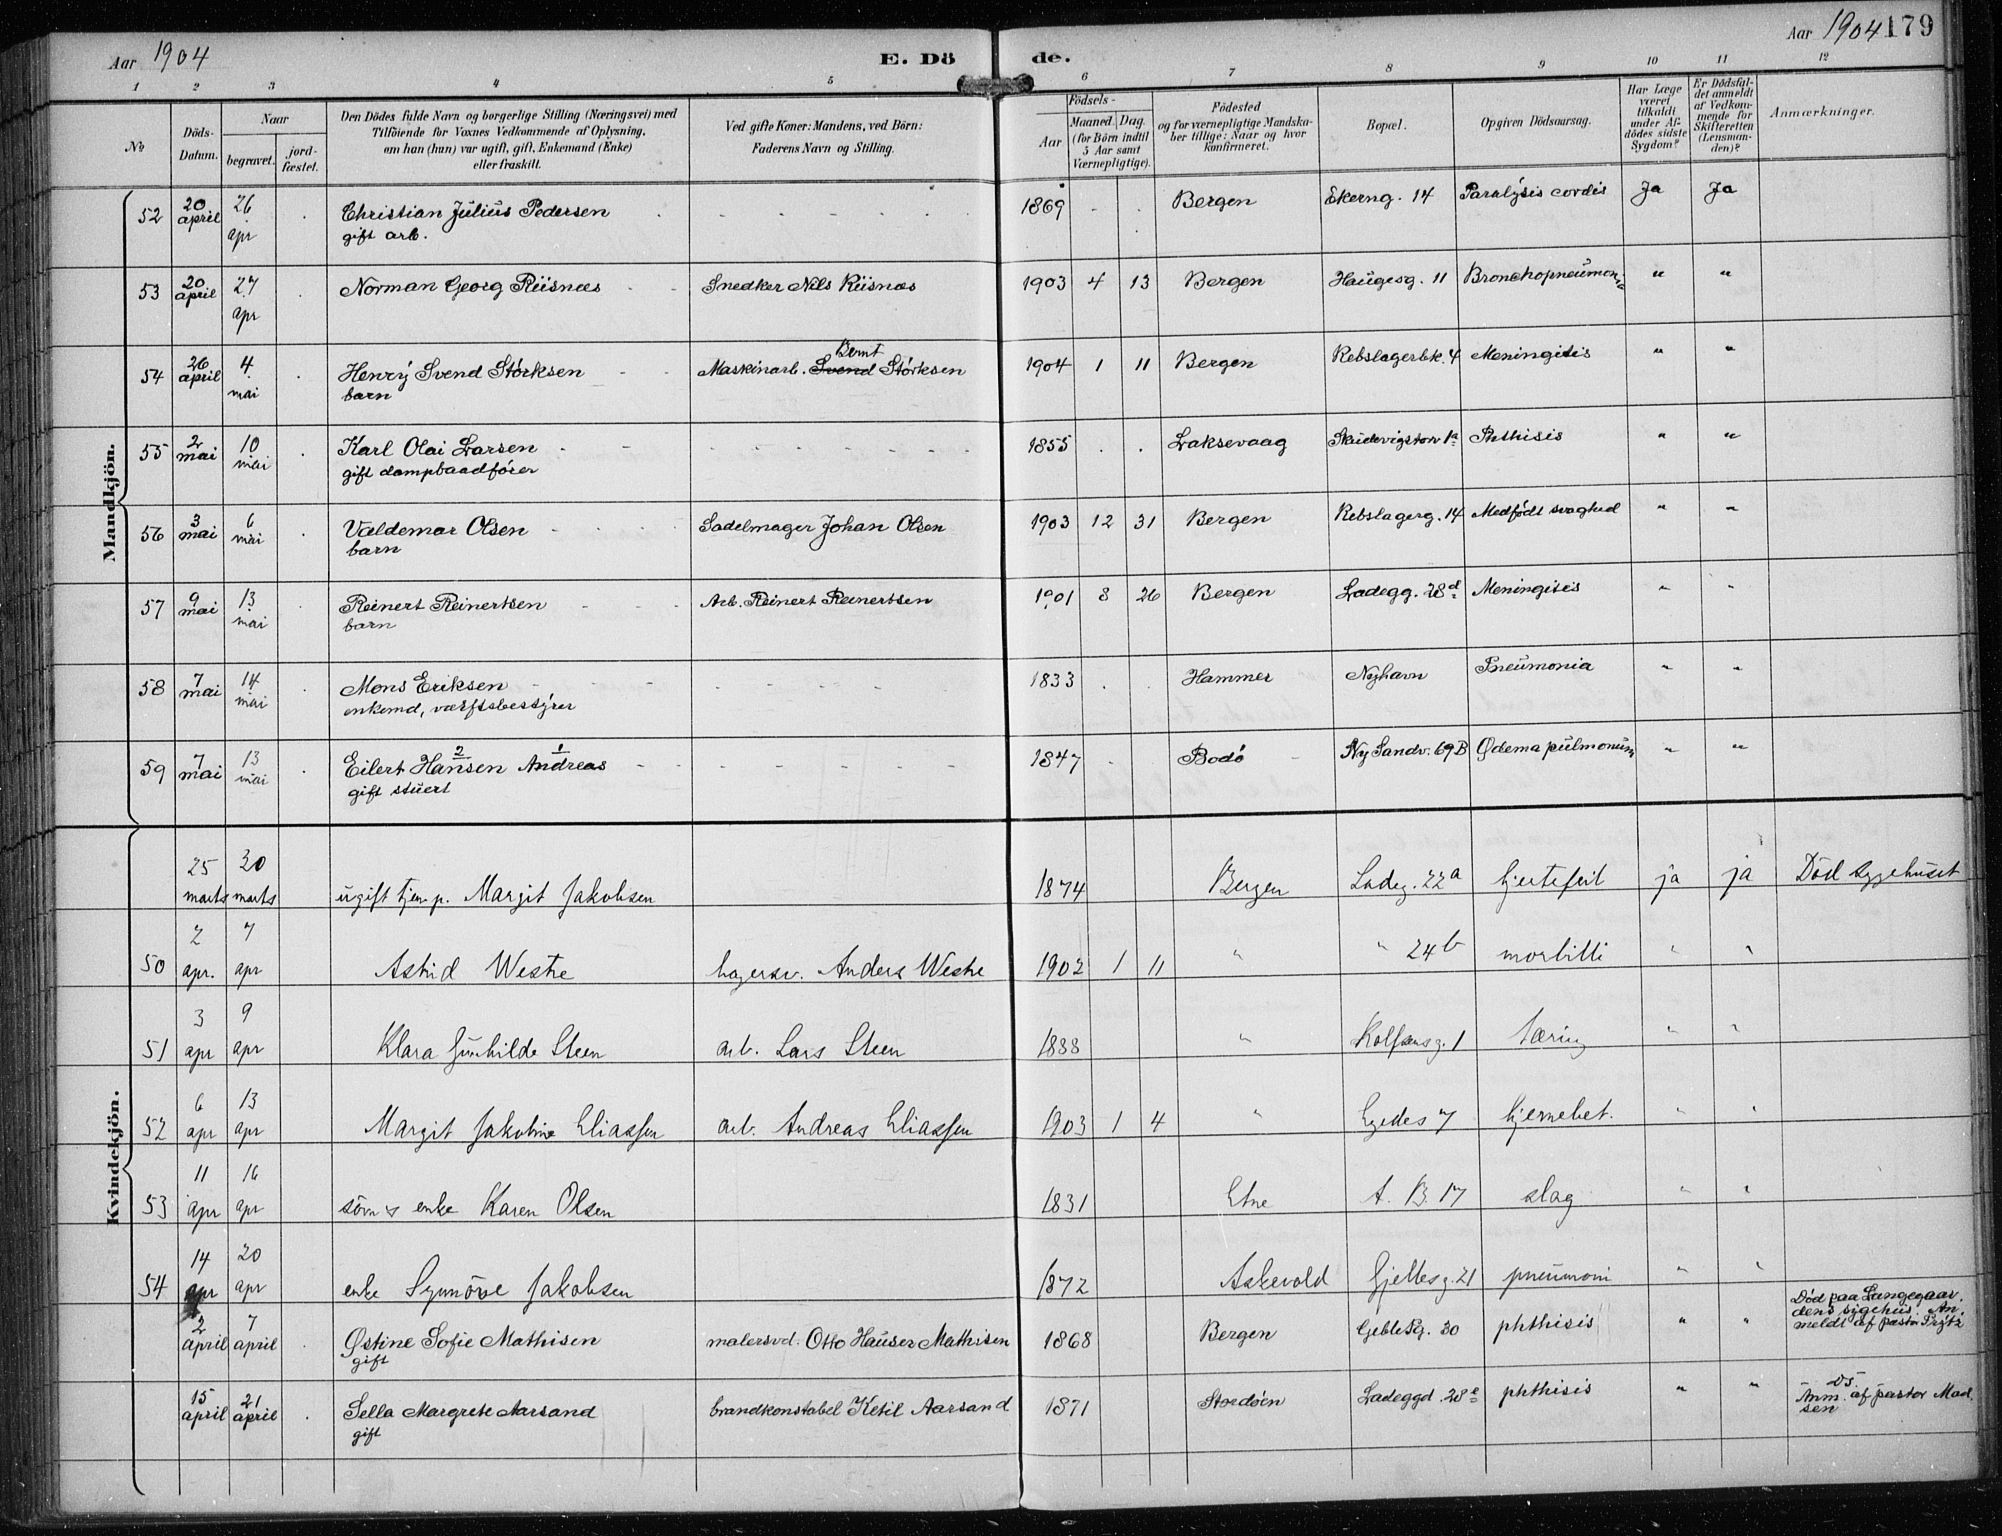 Aar 1904
E. Dö
de.
Aar 1904 179
1 2 3 4 5 6 7 8 9 10 11 12
No
Döds-Datum.
Naar
begravet.
jord-fæstet.
Den Dödes fulde Navn og borgerlige Stilling (Næringsvei) med
Tilföiende for Voxnes Vedkommende af Oplysning,
om han (hun) var ugift, gift, Enkemand (Enke)
eller fraskilt.
Ved gifte Koner: Mandens, ved Börn:
Faderens Navn og Stilling.
Födsels-
Aar
Maaned. Dag.
(for Börn indtil
5 Aar samt
Værnepligtige).
Födested
og for værnepligtige Mandska-
ber tillige: Naar og hvor
konfirmeret.
Bopæl.
Opgiven Dödsaarsag.
Har Læge
været
tilkaldt
under Af-
dödes sidste
Sygdom?
Er Dödsfal-
det anmeldt
af Vedkom-
mende for
Skifteretten
(Lensman-
den)?
Anmærkninger.
Mandkjön.
52 20 april 26 apr Christian Julius Pedersen 1869 Bergen Ekerng. 14 Paralysis cordis Ja Ja
gift arb.
53 20 april 27 apr Norman Georg Riisnæs Snedker Nils Riisnæs 1903 4 13 Bergen Haugesg. 11 Bronchopneumonia " "
54 26 april 4 mai Henry Svend Størksen Maskinarb. Svend Bernt Størksen 1904 1 11 Bergen Rebslagerbk. 4 Meningitis " "
barn
55 2 mai 10 mai Karl Olai Larsen 1855 Laksevaag Skudevigstorv 1a Phthisis " "
gift dampbaadfører
56 3 mai 6 mai Valdemar Olsen Sadelmager Johan Olsen 1903 12 31 Bergen Rebslagerg. 14 Medfødt svaghed " "
barn
57 9 mai 13 mai Reinert Reinertsen Arb. Reinert Reinertsen 1901 8 26 Bergen Ladegg. 28d Meningitis " "
barn
58 7 mai 14 mai Mons Eriksen 1833 Hammer Nyhavn Pneumonia " "
enkemd, værftsbestyrer
59 7 mai 13 mai Eilert Hansen 2 Andreas 1 1847 Bodø Ny Sandv. 69B Ødema pulmonum " "
gift stuert
Kvindekjön.
25 marts 30 marts ugift tjen.p. Margit Jakobsen 1874 Bergen Ladeg. 22a hjertefeil ja ja Död Sygehuset
50 2 apr. 7 apr Astrid Westre Anders Westre 1902 1 11 " " 24b morbilli " "
51 3 apr 9 apr Klara Gunhilde Steen arb. Lars Steen 1888 " Rolfsensg. 1 tæring " "
52 6 apr 13 apr Margit Jakobine Eliassen arb. Andreas Eliassen 1903 1 4 " Egedes 7 hjernebet. " "
53 11 apr 16 apr enke Karen Olsen 1831 Etne A. B 17 slag " "
54 14 apr 20 apr enke Synnöve Jakobsen 1872 Askevold Gjellesg. 21 pneumoni " "
2 april 7 april Østine Sofie Mathisen malersvd. Otto Hauser Mathisen 1868 Bergen Gebleg. 30 phthisis " " Død paa Lungegaar-
dens sygehus. An-
meldt af pastor Prytz
gift
15 april 21 april Sella Margrete Aarsand brandkonstabel Ketil Aarsand 1871 Stordøen Ladeggd. 28e phthisis " " Ds.
Anm. af pastor Mad-
sen
gift